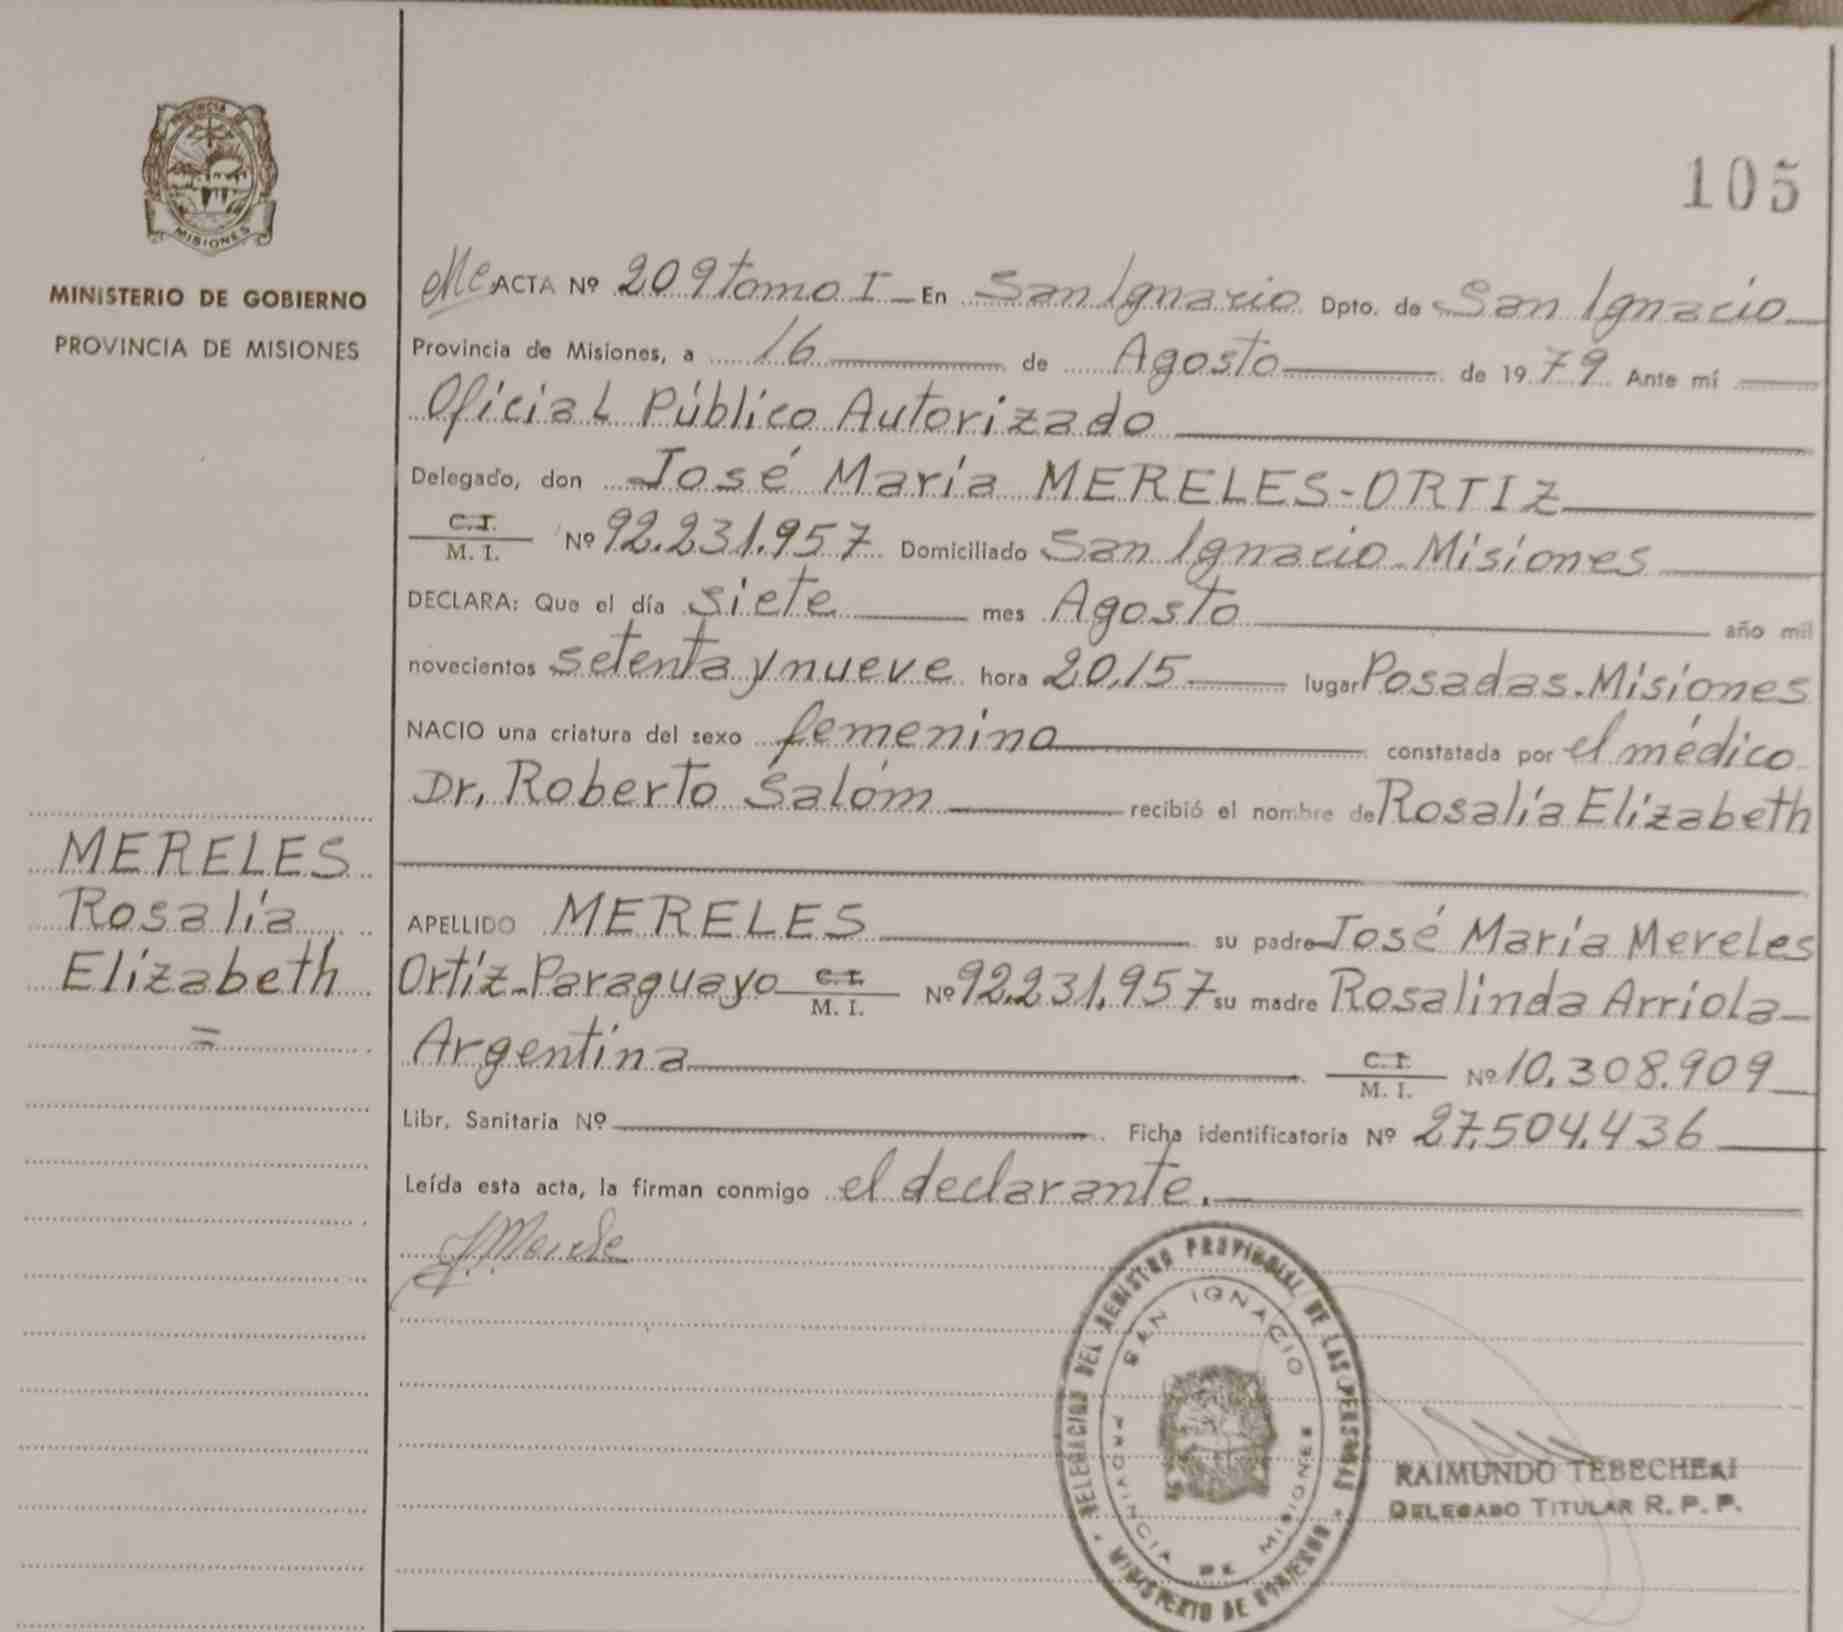 PROVINCIA DE
MISIONES
MINISTERIO DE GOBIERNO
PROVINCIA DE MISIONES
MERELES
Rosalía
Elizabeth
=
105
ACTA Nº 209 tomo I - En San Ignacio Dpto. de San Ignacio
Provincia de Misiones, a 16 de Agosto de 1979 Ante mí
Oficial Público Autorizado
Delegado, don José María MERELES-ORTIZ
C.I.
M. I. Nº 92.231.957 Domiciliado San Ignacio-Misiones
DECLARA: Que el día siete mes Agosto año mil
novecientos setenta y nueve hora 20,15 lugar Posadas-Misiones
NACIO una criatura del sexo femenino constatada por el médico
Dr, Roberto Salóm recibió el nombre de Rosalía Elizabeth
APELLIDO MERELES su padre José María Mereles
Ortíz-Paraguayo C.I. M. I. Nº 92.231.957 su madre Rosalinda Arriola-
Argentina C.I. M. I. Nº 10.308.909
Libr. Sanitaria Nº Ficha identificatoria Nº 27.504.436
Leída esta acta, la firman conmigo el declarante.
DELEGACION DEL REGISTRO PROVINCIAL DE LAS PERSONAS
SAN IGNACIO
PROVINCIA DE MISIONES
MINISTERIO DE GOBIERNO
RAIMUNDO TEBECHERI
DELEGADO TITULAR R. P. P.